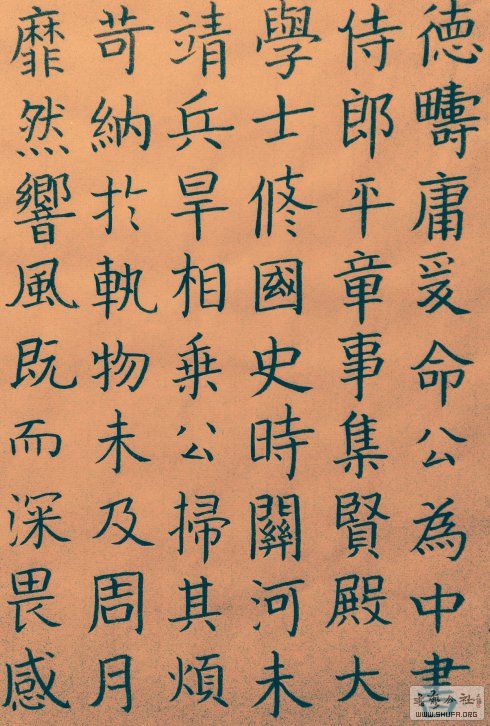 德疇庸爰命公為中書
侍郎平章事集賢殿大
學士修國史時關河未
靖兵旱相乗公掃其煩
苛納於軌物未及周月
靡然響風既而深畏感
WWW.SHUFA.ORG